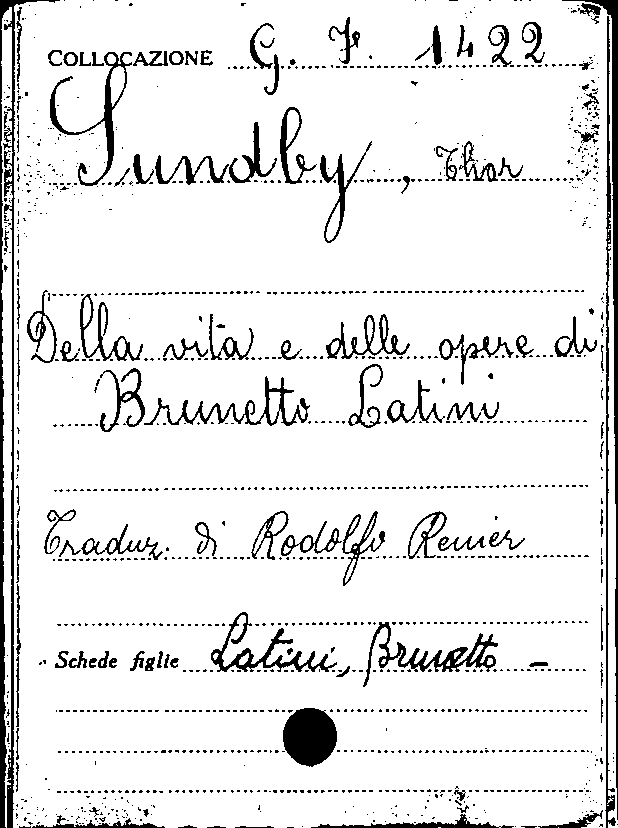 COLLOCAZIONE G. F. 1422
Sundby, Thor
Della vita e delle opere di
Brunetto Latini
Traduz. di Rodolfo Renier
Schede figlie Latini, Brunetto -